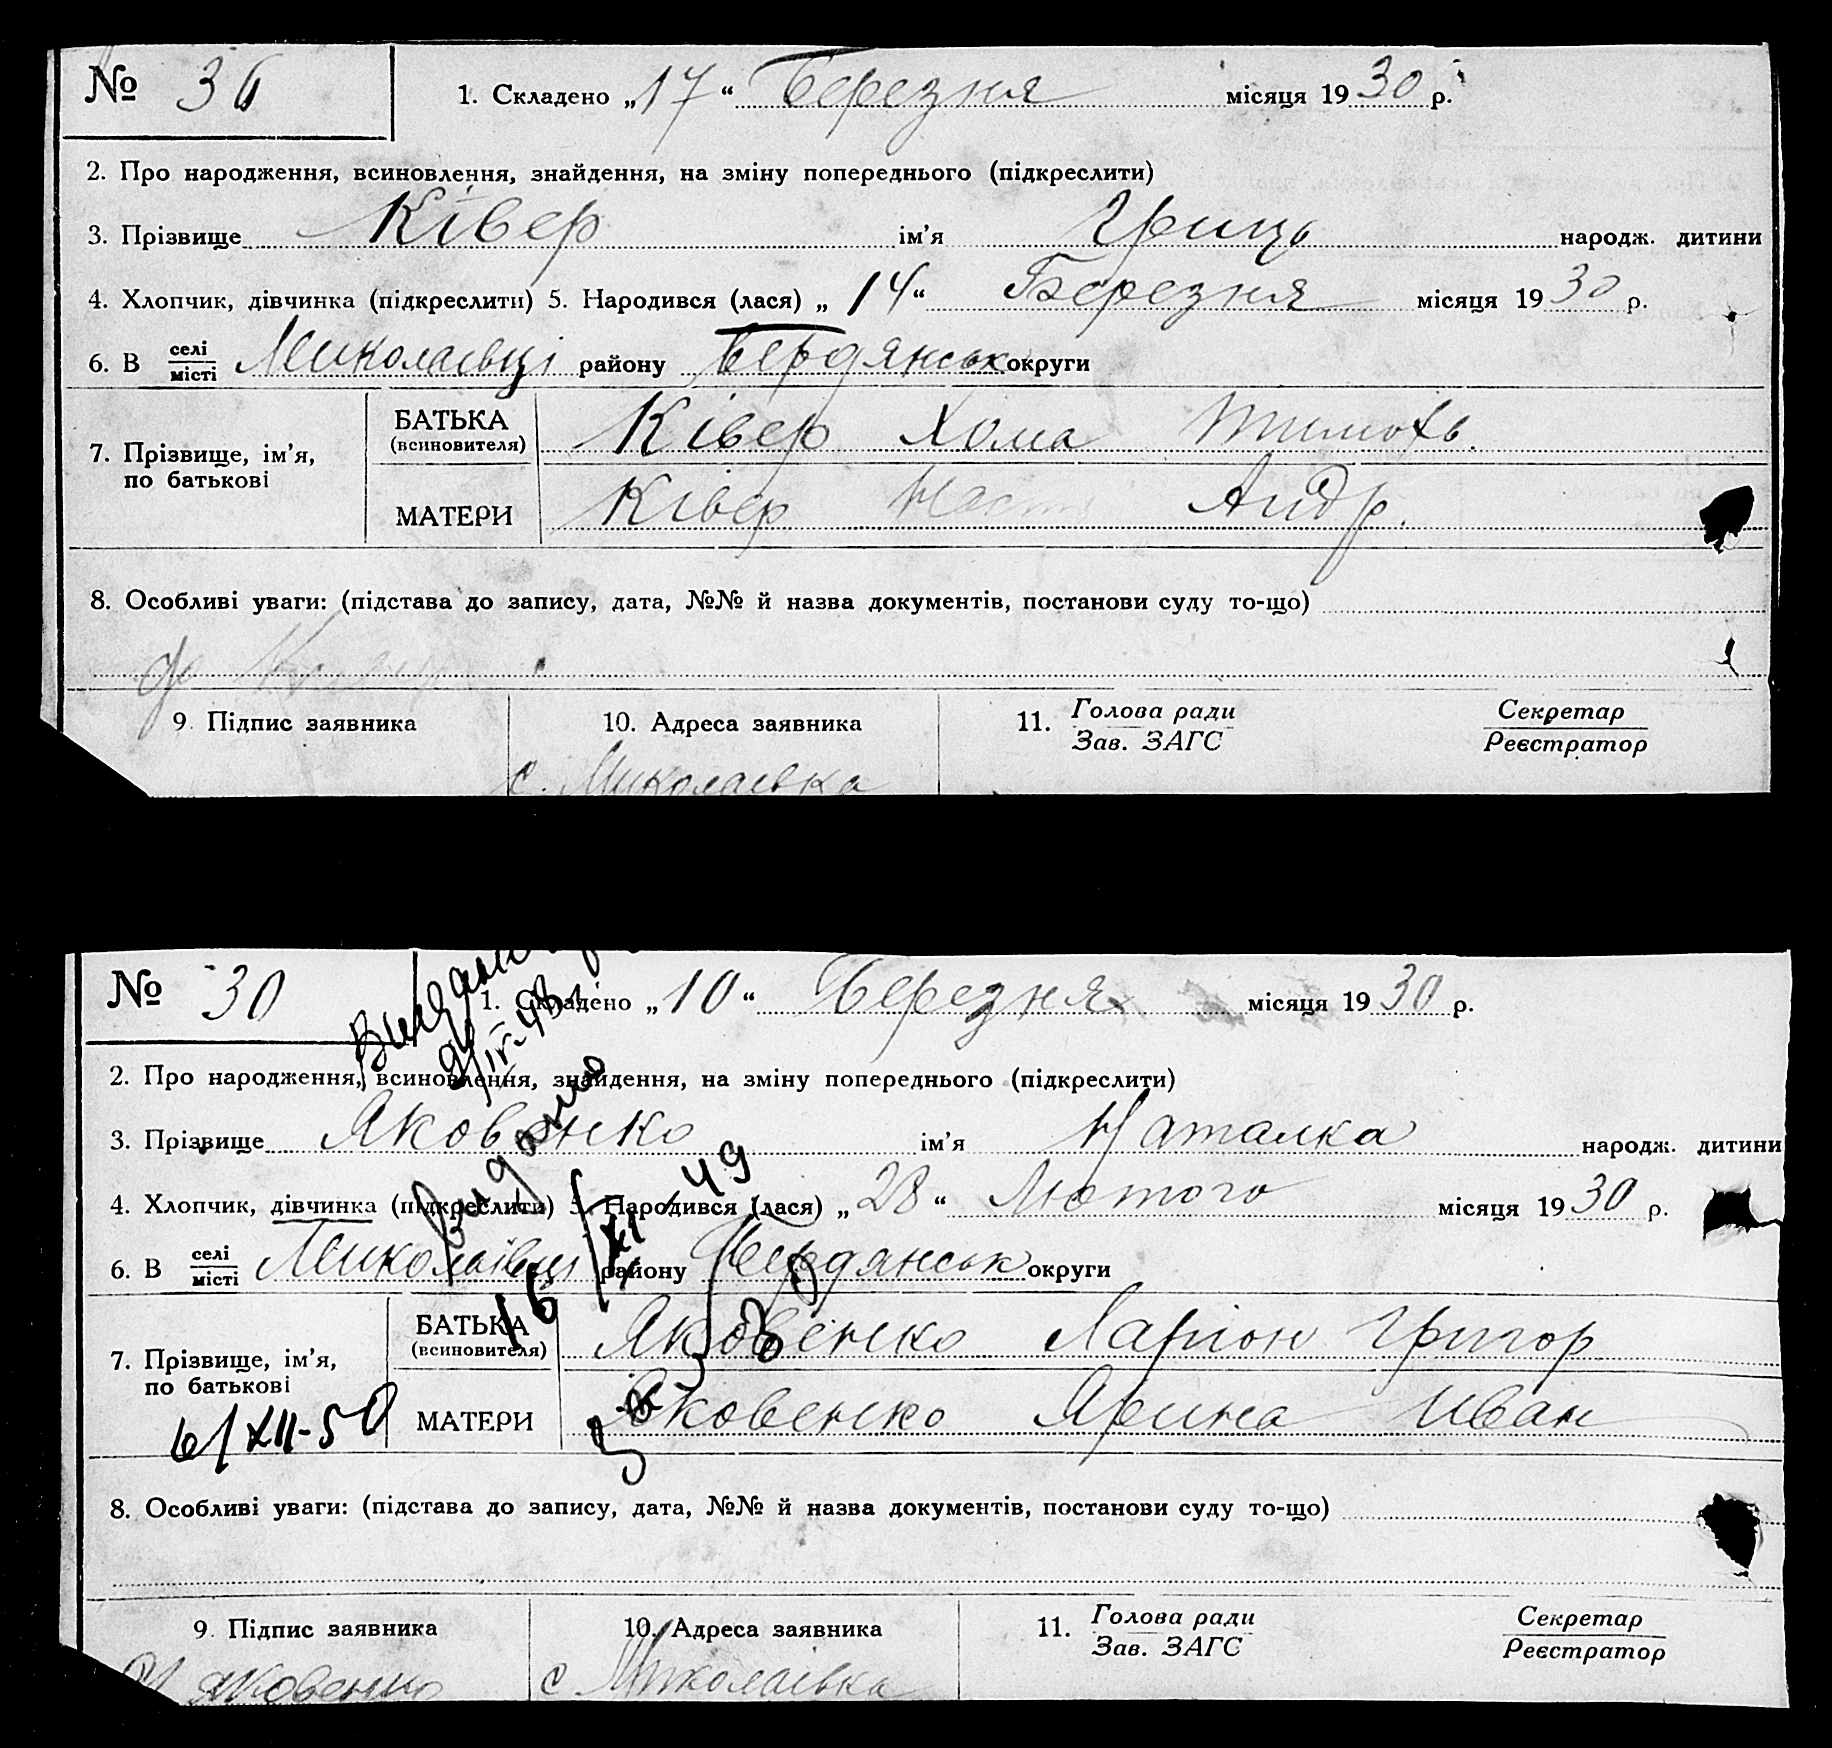 № 36 1. Складено „17“ Березня місяця 1930 р.
2. Про народження, всиновлення, знайдення, на зміну попереднього (підкреслити)
3. Прізвище Ківер ім’я Гриць народж. дитини
4. Хлопчик, дівчинка (підкреслити) 5. Народився (лася) „14“ Березня місяця 1930 р.
6. В селі/місті Миколаївці району Бердянськ округи
7. Прізвище, ім’я, по батькові
БАТЬКА (всиновителя) Ківер Хома Тимохв.
МАТЕРИ Ківер Наст Андр.
8. Особливі уваги: (підстава до запису, дата, №№ й назва документів, постанови суду то-що)
9. Підпис заявника 10. Адреса заявника 11. Голова ради/Зав. ЗАГС Секретар/Реєстратор
с. Миколаєвка
№ 30 1. Складено „10“ Березня місяця 1930 р.
Видано
9/IV-48
2. Про народження, всиновлення, знайдення, на зміну попереднього (підкреслити)
3. Прізвище Яковенко ім’я Наталка народж. дитини
Видано
16/XI-49
4. Хлопчик, дівчинка (підкреслити) 5. Народився (лася) „28“ Лютого місяця 1930 р.
6. В селі/місті Миколаївці району Бердянськ округи
7. Прізвище, ім’я, по батькові
БАТЬКА (всиновителя) Яковенко Ларіон Григор
МАТЕРИ Яковенко Ярина Иван
6/XII-50
8. Особливі уваги: (підстава до запису, дата, №№ й назва документів, постанови суду то-що)
9. Підпис заявника 10. Адреса заявника 11. Голова ради/Зав. ЗАГС Секретар/Реєстратор
Яковенко с Миколаївка